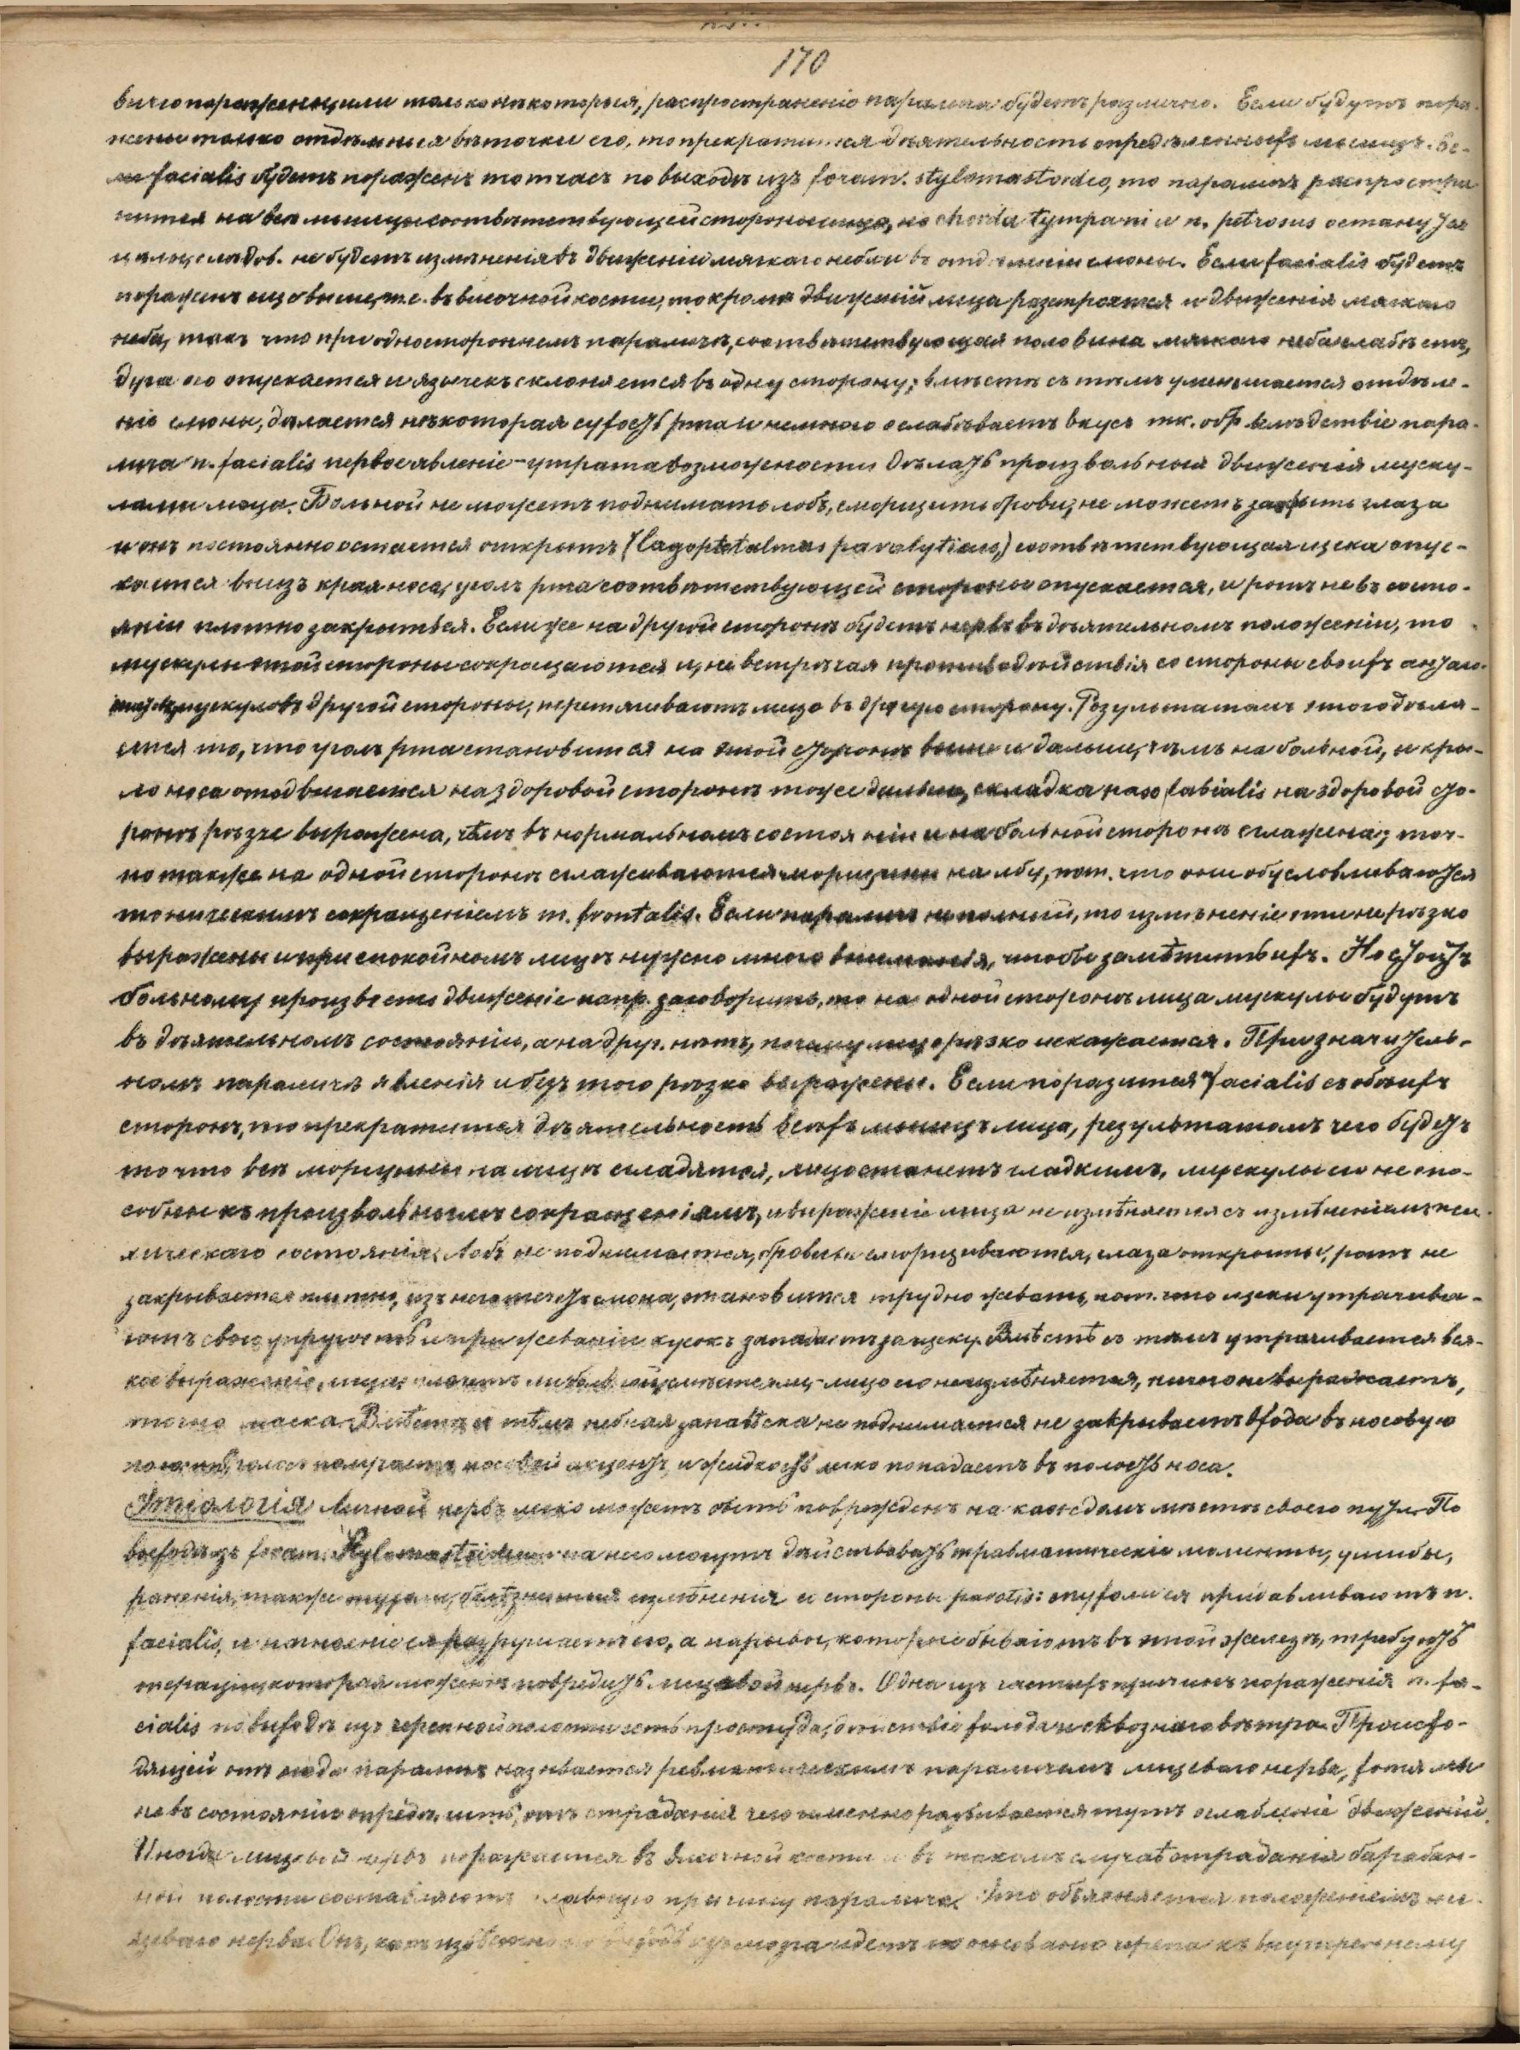 170
его пораженъ, или только нѣкоторыя, распространеніе паралича будетъ различно. Если будутъ пора-
жены только отдѣльныя вѣточки его, то прекратится дѣятельность опредѣленныхъ мышцъ. Ес-
ли facialis будетъ пораженъ тотчасъ по выходѣ изъ foram. stylomastoideo, то параличъ распростра
нится на всѣ мышцы соотвѣтствующей стороны лица, но chorda tympani и n. petrosus останутся
цѣлы, слѣдов. не будетъ измѣненія въ движеніи мягкаго неба и въ отдѣленіи слюны. Если facialis будетъ
пораженъ еще выше, т.е. въ височной кости, то кромѣ движеній лица разстроятся и движенія мягкаго
неба, такъ что при одностороннемъ параличѣ, соотвѣтствующая половина мягкаго неба слабѣетъ,
дуга его опускается и язычекъ склоняется въ одну сторону; вмѣстѣ съ тѣмъ уменьшается отдѣле-
ніе слюны, дѣлается нѣкоторая сухость рта и немного ослабѣваетъ вкусъ. тк. обр. вслѣдствіе пара-
лича n. facialis первое явленіе - утрата возможности дѣлать произвольныя движенія муску-
лами лица. Больной не можетъ поднимать лобъ, сморщить брови, не можетъ закрыть глаза
и онъ постоянно остается открытъ (Lagoptalmus paralyticus,) соотвѣтствующая щека опус-
кается внизъ края носа, уголъ рта соотвѣтствующей стороны опускается, и ротъ не въ состо-
яніи плотно закрыться. Если же на другой сторонѣ будетъ нервъ въ дѣятельномъ положеніи, то
мускулы этой стороны сокращаются и, не встрѣчая противодѣйствія со стороны своихъ антаго-
мускуловъ другой стороны, перетягиваютъ лицо въ другую сторону. Результатомъ этого дѣла-
ется то, что уголъ рта становится на этой сторонѣ выше и дальше, чѣмъ на больной, и кры-
ло носа отодвигается на здоровой сторонѣ тоже дальше, складка naso labialis на здоровой сто-
ронѣ рѣзче выражена, чѣмъ въ нормальномъ состояніи и на больной сторонѣ сглажена; точ-
но также на одной сторонѣ сглаживаются морщины на лбу, пот. что они обусловливаются
тоническимъ сокращеніемъ m. frontalis. Если параличъ неполный, то измѣненіе эти не рѣзко
выражены и при спокойномъ лицѣ нужно много вниманія, чтобы замѣтить ихъ. Но стоитъ
больному произвесть движеніе напр. заговорить, то на одной сторонѣ лица мускулы будутъ
въ дѣятельномъ состояніи, а на друг. нѣтъ, почему лицо рѣзко искажается. При значитель-
номъ параличѣ явленія и безъ того рѣзко выражены. Если поразится n. facialis съ обѣихъ
сторонъ, то прекратится дѣятельность всѣхъ мышцъ лица, результатомъ чего будетъ
то что всѣ морщины на лицѣ сгладятся, лицо станетъ гладкимъ, мускулы его не спо-
собны къ произвольнымъ сокращеніямъ, и выраженіе лица не измѣняется съ измѣненіемъ пси-
хическаго состоянія, лобъ не поднимается, брови не сморщиваются, глаза открыты, ротъ не
закрывается плотно, изъ него течетъ слюна, становится трудно жевать, пот. что щеки утрачива-
ютъ свою упругость и при жеваніи кусокъ западаетъ за щеку. Вмѣстѣ съ тѣмъ утрачивается вся-
кое выраженіе лица, лицо его не измѣняется, ничего не выражаетъ,
точно маска. Вмѣстѣ съ тѣмъ небная занавѣска не поднимается не закрываетъ входа въ носовую
полость, голосъ получаетъ носовой акцентъ и жидкость легко попадаетъ въ полость носа.
Этіологія Личной нервъ легко можетъ быть поврежденъ на каждомъ мѣстѣ своего пути. По
выходѣ изъ foram. Stylomastoideum на него могутъ дѣйствовать травматическіе моменты, ушибы,
раненія, также болѣзненныя измѣненія со стороны parotis: опухоли ея придавливаютъ n.
facialis, и нагноеніе ея разрушаетъ его, а нарывы, которые бываютъ въ этой железѣ, требуютъ
операціи, которая можетъ повредить лицевой нервъ. Одна изъ частыхъ причинъ пораженія n. fa-
cialis по выходѣ изъ черепной полости есть простуда, дѣйствіе холода и сквознаго вѣтра. Происхо-
дящій отъ сюда параличъ называется ревматическимъ параличемъ лицеваго нерва, хотя мы
не въ состояніи опредѣлить, отъ страданія чего именно развивается тутъ ослабленіе движеній.
Иногда лицевой нервъ поражается въ височной кости и въ такомъ случаѣ страданія барабан-
ной полости составляютъ главную причину паралича. Это объясняется положеніемъ ли-
цеваго нерва. Онъ, какъ извѣстно по выходѣ изъ мозга идетъ по основанію черепа къ внутреннему